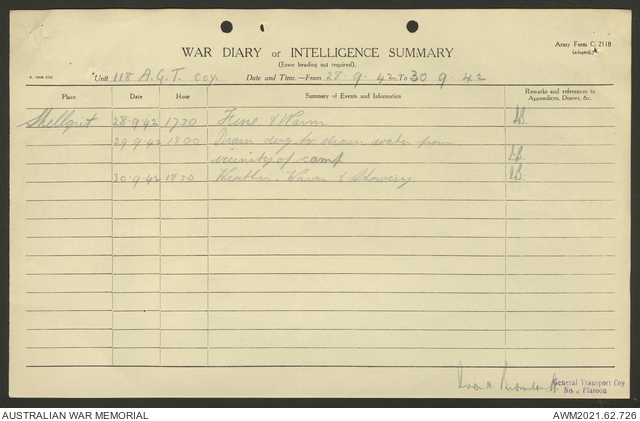 Army Form C. 2118
(adapted)
WAR DIARY or INTELLIGENCE SUMMARY
(Erase heading not required).
Unit 118 A.G.T. Coy. Date and Time.—From 28.9.42 To 30 9.42
Place Date Hour Summary of Events and Information Remarks and references to Appendices, Diaries, &c.
28.9.42 1730 Fine & Warm
29.9.42 1800 Drain dug to drain water from
vicinity of camp
30.9.42 1830 Weather. Warm & Showery
General Transport Coy
No. Platoon
AUSTRALIAN WAR MEMORIAL AWM2021.62.726